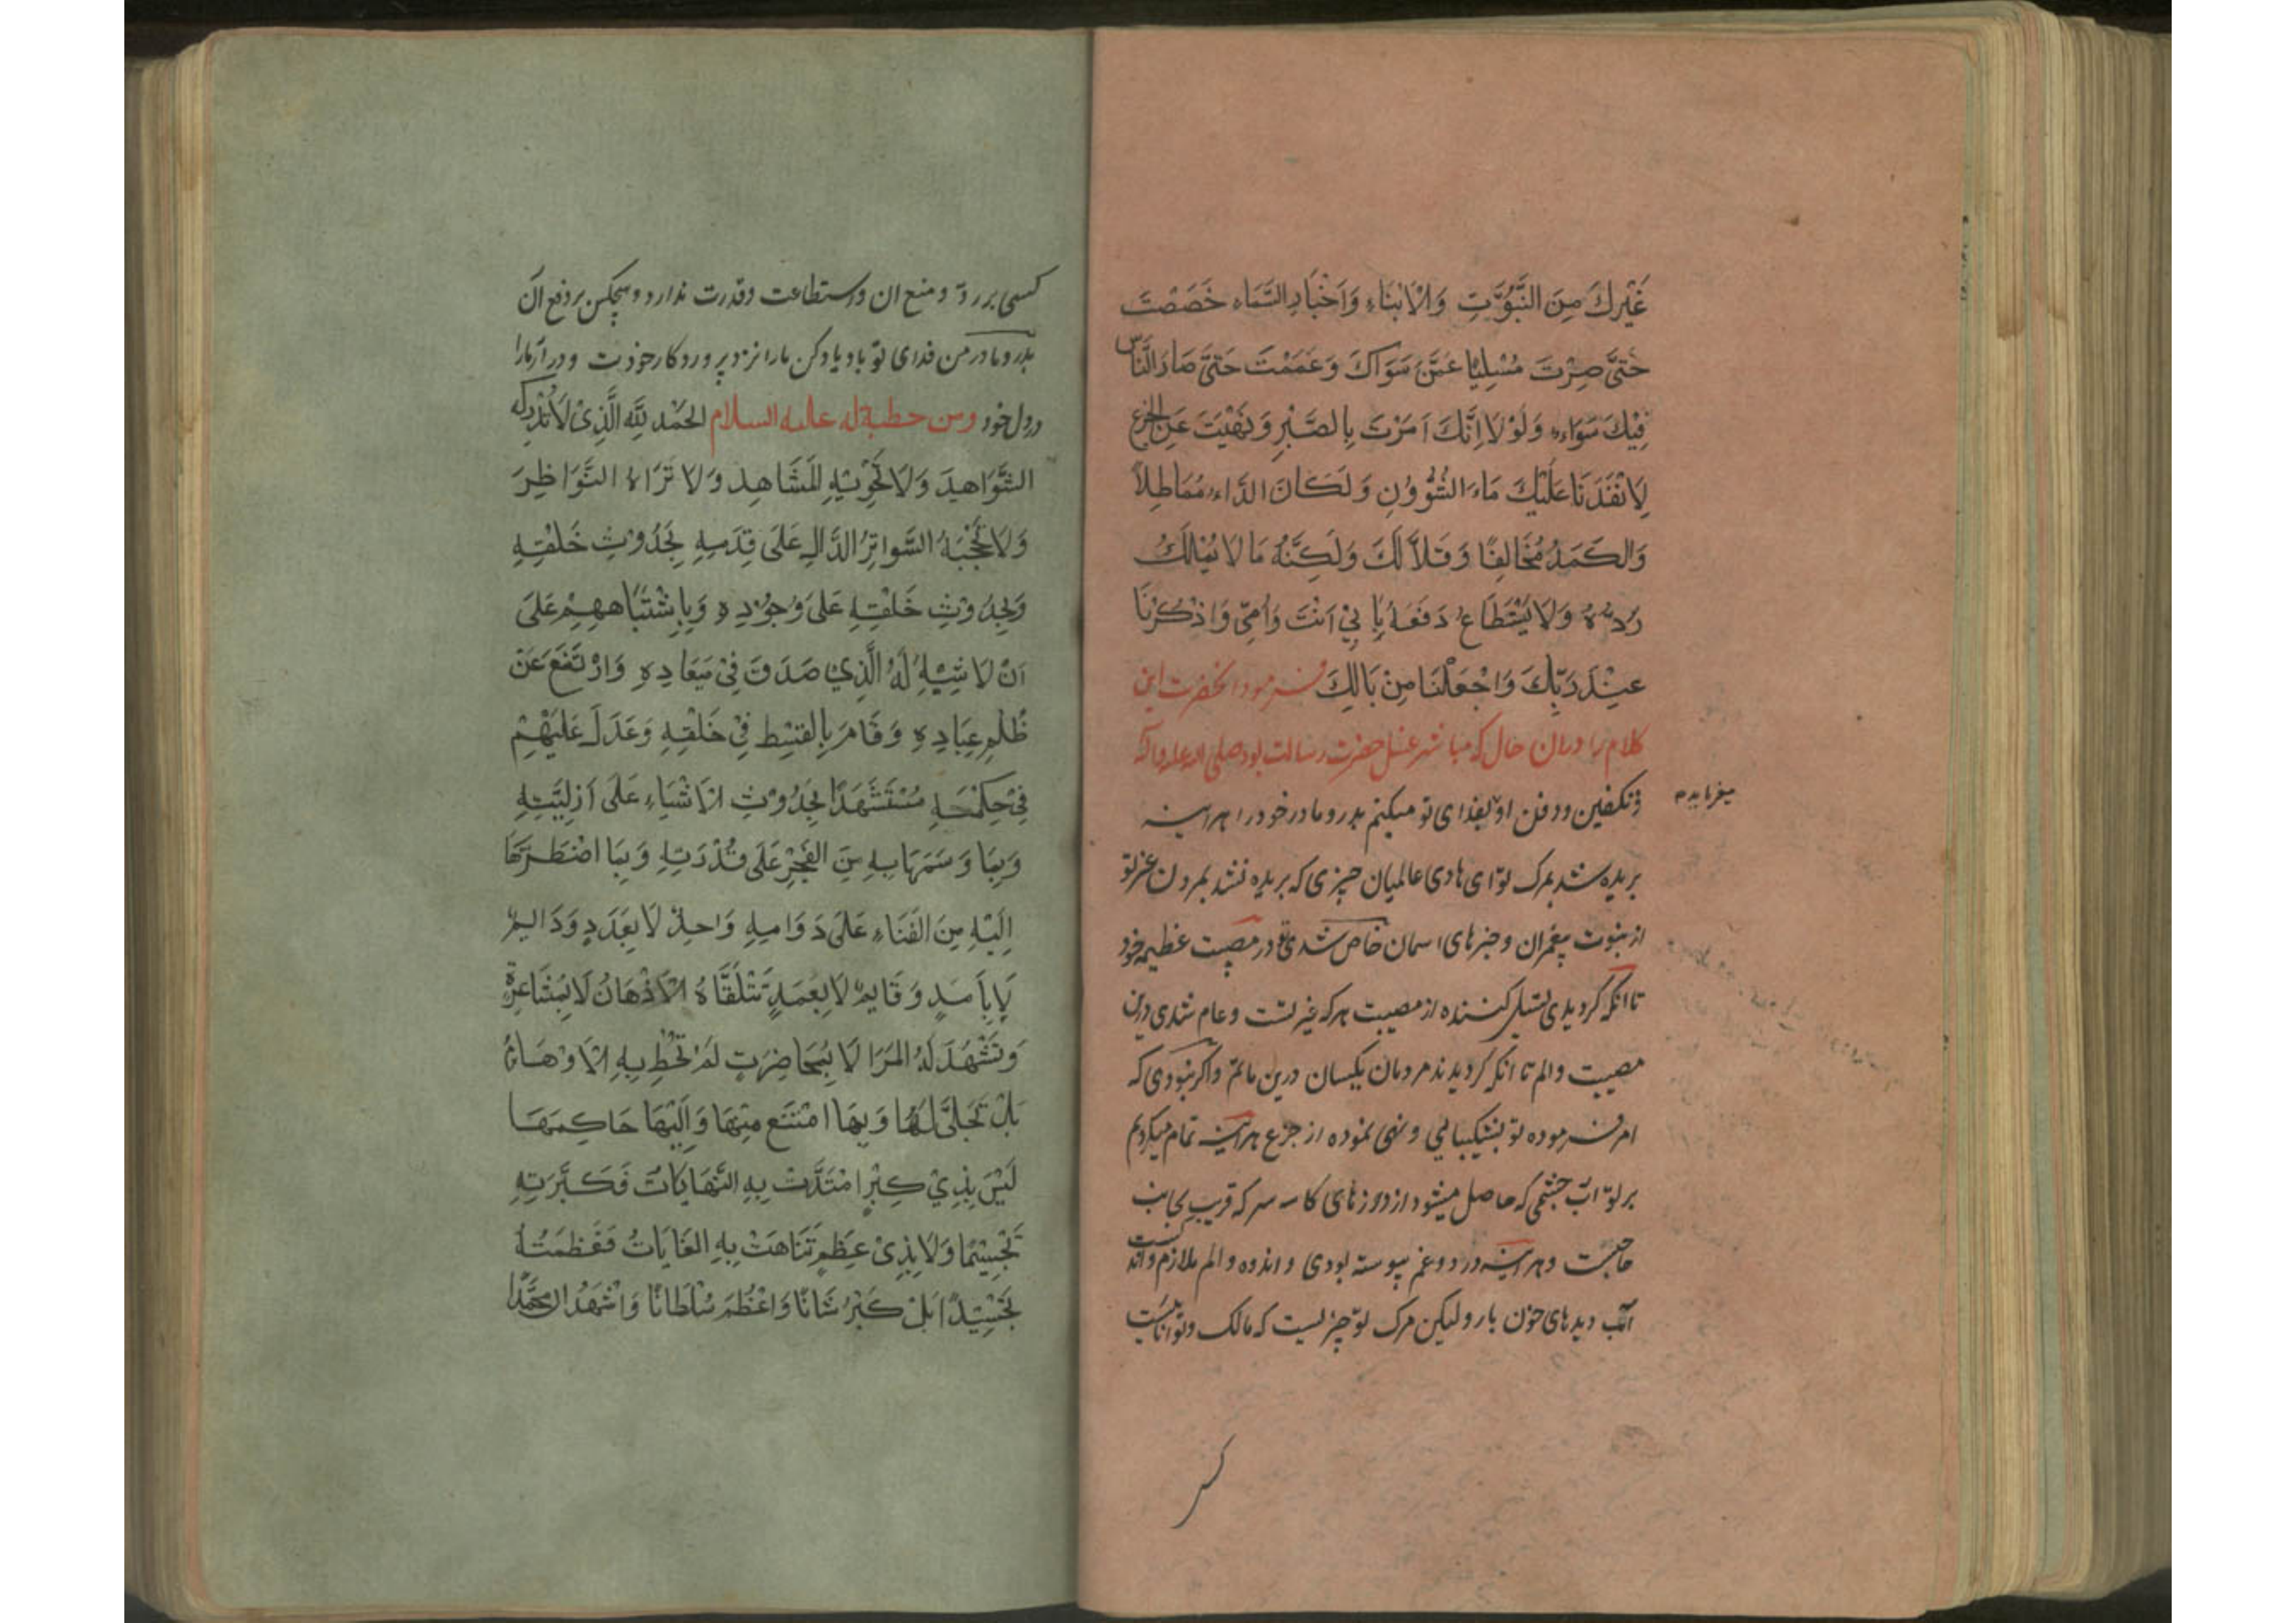 غَيْرِكَ مِنَ النُّبُوَّتِ وَالْاَنْبَاءِ وَاَخْبَارِ السَّمَاء خَصَصْتَ
حَتَّى صِرْتَ مُسْلِيًا عَمَّنْ سَوَاكَ وَعَمَمْتَ حَتَّى صَارَ النَّاسُ
فِيْكَ سَوَاء وَلَوْلَا اَنَّكَ اَمَرْتَ بِالصَّبْرِ وَنَهَيْتَ عَنِ الجزع
لَاَنْفَدْنَا عَلَيْكَ مَاءَ الشُّؤُوْنِ وَلَكَانَ الدَّاءُ مُمَاطِلاً
وَالكَمَدُ مُحَالِفًا وَقَلاَّ لَكَ وَلَكِنَّهُ مَا لَا يُمْلَكُ
رَدُّهُ وَلَا يُسْتَطَاعُ دَفْعُهُ بِاَبِيْ اَنْتَ وَاُمِّى وَاذْكُرْنَا
عِنْدَ رَبِّكَ وَاجْعَلْنَا مِنْ بَالِكَ فرمود انحضرت این
کلام را دران حال که مباشر غسل حضرت رسالت بود صلی الله علیه واله
وتکفین ودفن او بفدای تو میکنم پدر و مادر خود را هراینه
میفرماید
بریده شد بمرک تو ای هادی عالمیان چیزی که بریده نشد بمردن غیر تو
از نبوت پیغمبران و خبرهای اسمان خاص شدی تو در مصیبت عظیمه خود
تا انکه کردیدی تسلی کننده از مصیبت هرکه غیر تست وعام شدی درین
مصیبت والم تا انکه کردیدند مردمان یکسان درین ماتم واکر نبودی که
امر فرموده تو بشکیبایی ونهی نموده از جزع هراینه تمام میکردیم
بر تو آب چشمی که حاصل میشود از درزهای کاسه سر که قریب بجانب
حاجبست وهراینه درد وغم پیوسته بودی واندوه والم ملازم واند کست
آب دیدهای خون بار ولیکن مرک تو چیزیست که مالک وتوانا نیست
کسی بر رد ومنع ان واستطاعت وقدرت ندارد وهیچکس بر دفع ان
پدر ومادر من فدای تو باد یاد کن مارا نزد پروردکار خودت ودر آر مارا
در دل خود ومن خطبة له علیه السلام الحَمْدُ لِلَّهِ الَّذِىْ لَا تُدْرِكُه
الشَّوَاهِدَ وَلَا تَحْوِيْهِ المَشَاهِد وَلَا تَرَاهُ النَّوَاظِرَ
وَلَا تَحْجُبُهُ السَّوَاتِرُ الدَّالِ عَلَى قِدَمِهِ بِحُدُوْثِ خَلْقِهِ
وَبِحُدُوْثِ خَلْقِهِ عَلَى وُجُوْدِهِ وَبِاِشْتِبَاهِهِمْ عَلَى
اَنْ لَا شِبْهَ لَهُ الَّذِيْ صَدَقَ فِىْ مِيْعَادِهِ وَارْتَفَعَ عَنْ
ظُلْمِ عِبَادِهِ وَقَامَ بِالقِسْطِ فِيْ خَلْقِهِ وَعَدَلَ عَلَيْهِمْ
فِيْ حِكْمَتِهِ مُسْتَشْهَدًا بِحُدُوْثِ الْاَشْيَاءِ عَلَى اَزَلِيَّتِهِ
وَبِمَا وَسَمَهَا بِهِ مِنَ العَجْزِ عَلَى قُدْرَتِهِ وَبِمَا اضْطَرَّهَا
اِلَيْهِ مِنَ الفَنَاءِ عَلَى دَوَامِهِ وَاحِدٌ لَا بِعَدَدٍ وَدَائِمٌ
لَا بِاَمَدٍ وَقَايِمٌ لَا بِعَمَدٍ تَتَلَقَّاهُ الْاَذْهَانُ لَا بِمُشَاعَرَةٍ
وَتَشْهَدُ لَهُ المَرَا لَا بِمُحَاضِرَتٍ لَمْ تُحِطْ بِهِ الْاَوْهَامُ
بَلْ تَجَلَّى لَهَا وَبِهَا امْتَنَع مِنْهَا وَاِلَيْهَا حَاكَمَهَا
لَيْسَ بِذِيْ كِبْرٍ امْتَدَّتْ بِهِ النِّهَايَاتُ فَكَبَّرَتْهِ
تَجْسِيْمًا وَلَا بِذِىْ عِظَمٍ تَنَاهَتْ بِهِ الغَايَاتُ فَعَظَّمَتْهُ
تَجْسِيْدًا بَلْ كَبُرَ شَانًا وَعَظُمَ سُلْطَانًا وَاَشْهَدُ ان مُحَمَّدًا
کسی